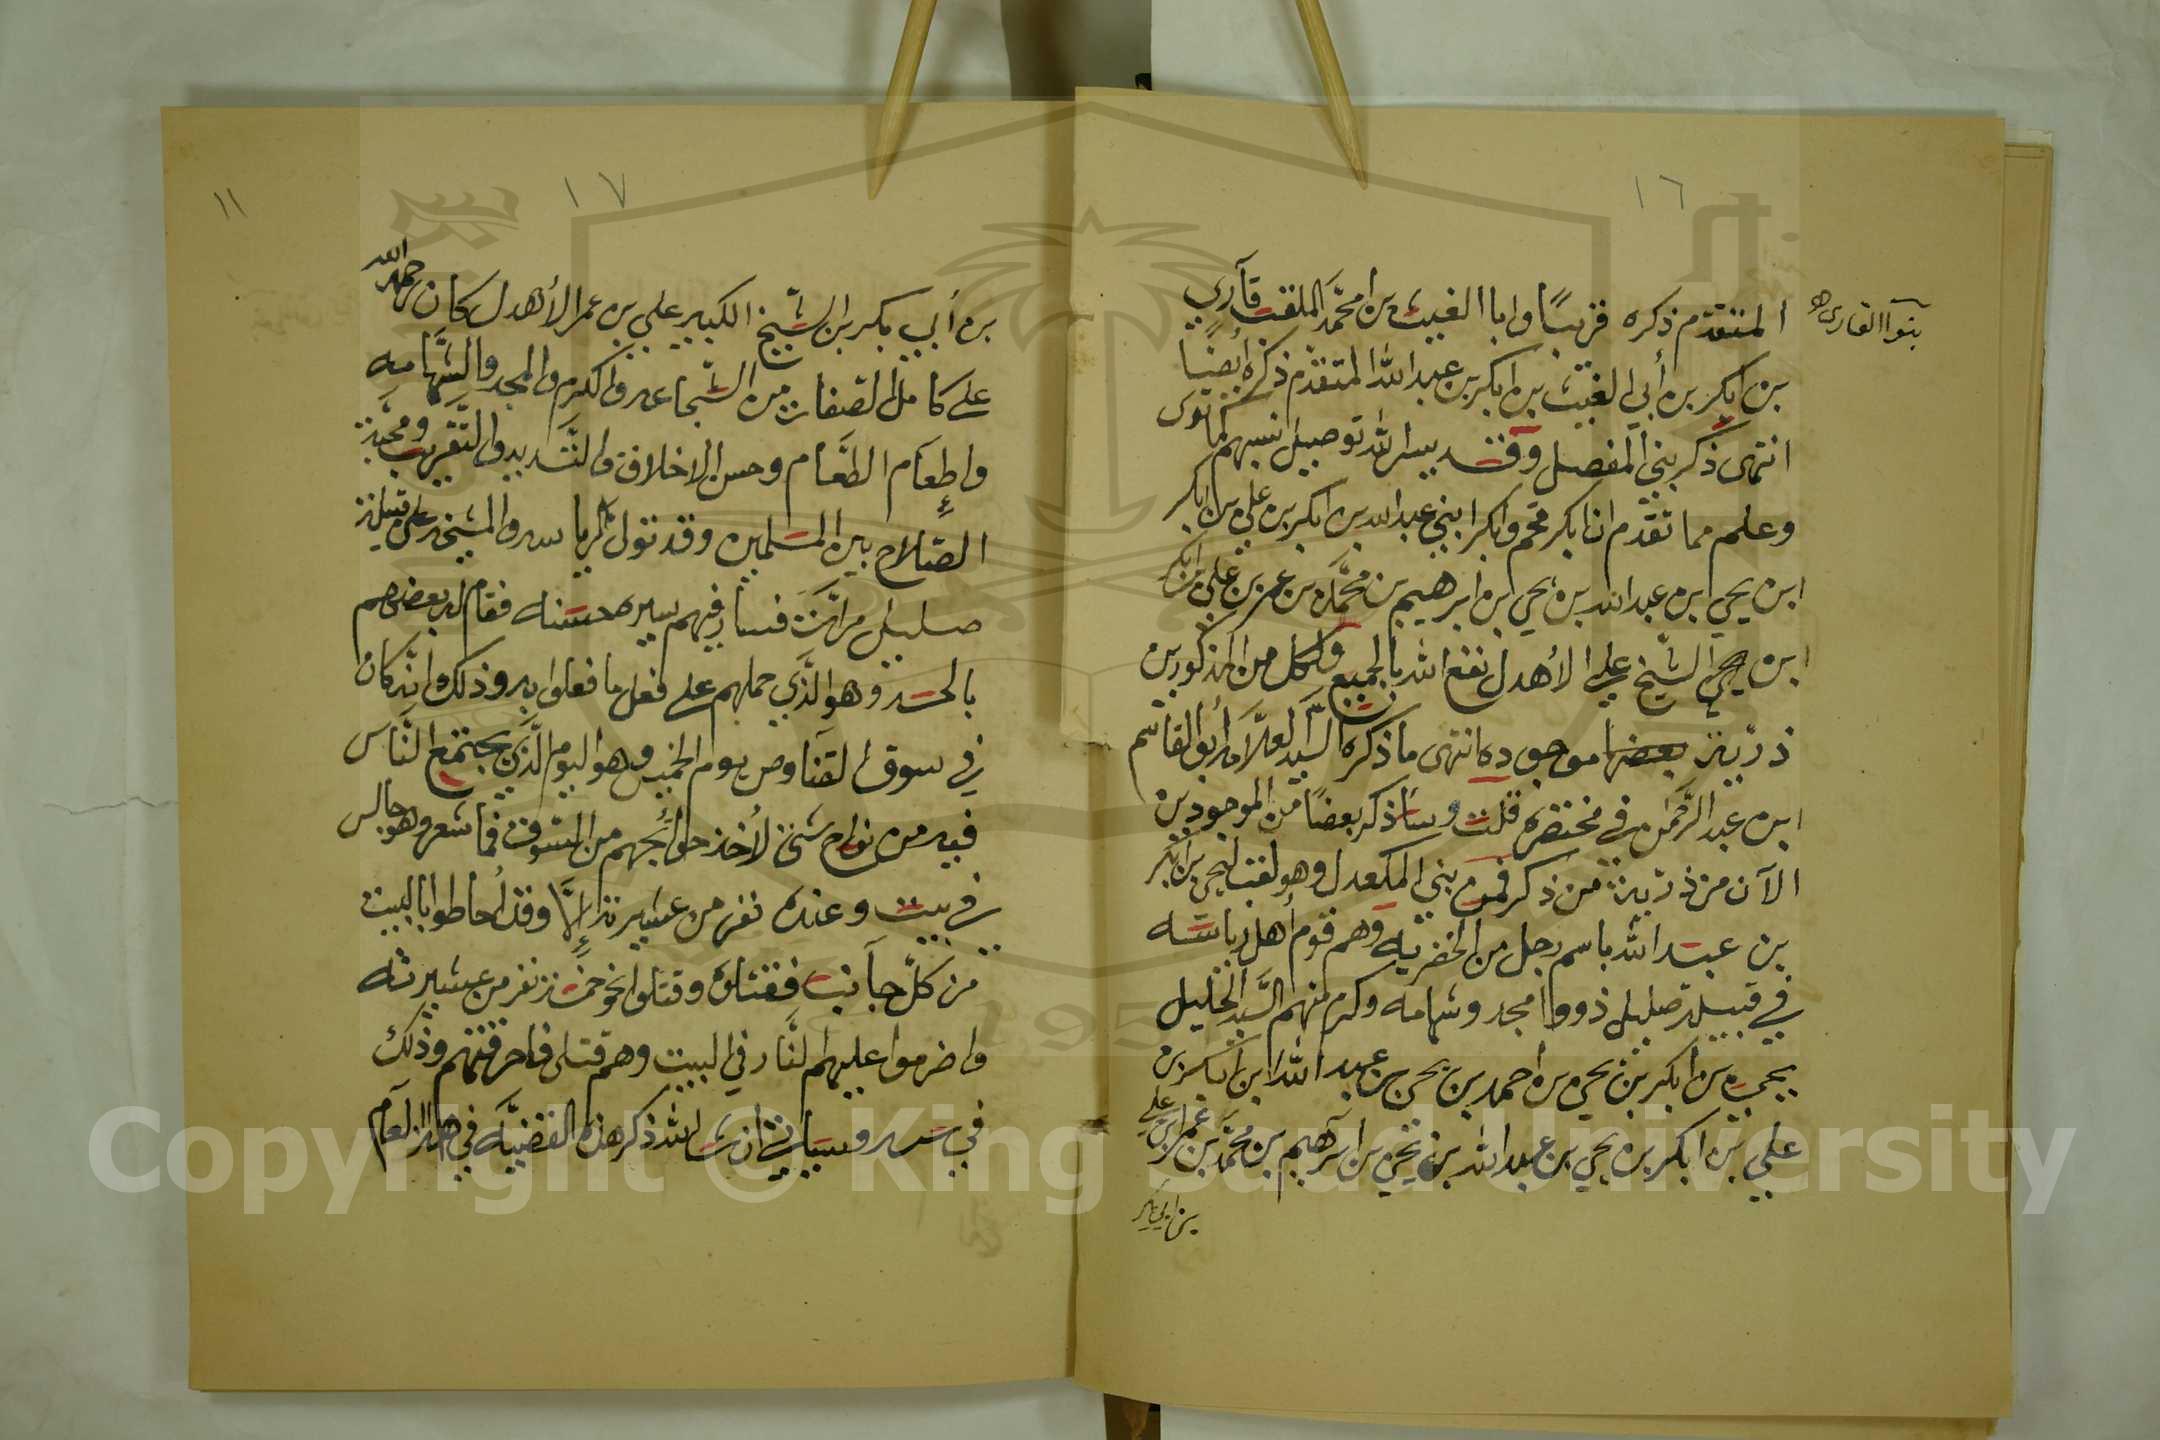 ١٦
بنوا القاري
المتقدم ذكره قريبًا وابا الغيث بن محمّد الملقب قاري
بن ابكر بن أبي الغيث بن ابكر بن عبد الله المتقدم ذكره أيضًا
انتهى ذكر بني المفصل وقد يسر الله توصيل نسبهم كما ترى
وعلم مما تقدم ان ابكر وابكر ابني عبد الله بن ابكر بن علي بن ابكر
ابن يحي ابن عبد الله بن يحي ابن ابرهيم بن محمّد بن عمر بن علي بن ابكر
ابن الشيخ علي الأهدل نفع الله بالجميع ولكل من المذكورين
ذرّية موجوده انتهى ما ذكره السّيد العلّامه أبو القاسم
ابن عبد الرّحمن في مختصره قلت وسأذكر بعضًا من الموجودين
الآن من ذرّية من ذكر فمن بني المكعدل وهو لقب ليحي بن ابكر
بن عبد الله باسم رجل من الخضريه وهم قوم أهل رياسه
في قبيلة صليل ذووا مجد وشهامه وكرم منهم السّيد الجليل
يحي بن ابكر بن يحي بن احمد بن يحي بن عبد الله ابن ابكر بن
علي بن ابكر بن يحي بن عبد الله بن يحي بن ابرهيم بن محمّد بن عمر بن علي
بن ابي بكر
١٧
١١
بن أبي بكر بن الشّيخ الكبير علي بن عمر الأهدل كان رحمه الله
على كامل الصفات من الشّجاعه والكرم والمجد والشّهامه
واطعام الطعام وحسن الاخلاق والتّسديد والتّقريب ومحبّة
الصّلاح بين المسلمين وقد تولى الرياسه والمشيخه على قبيلة
صليل مرّات فسار فيهم سيره حسنه فقام له بعضهم
بالحسد وهو الّذي حملهم على فعل ما فعلوا به وذلك انّه كان
في سوق القناوص يوم الخميس وهو اليوم الّذي يجتمع النّاس
فيه من نواح شتى لأخذ حوائجهم من السّوق فما شعر وهو جالس
في بيت وعنده نفر من عشيرته إلّا وقد أحاطوا بالبيت
من كلّ جانب فقتلوه وقتلوا نحو خمسة نفر من عشيرته
واضرموا عليهم النّار في البيت وهم قتلى فاحرقتهم وذلك
في سنه وسيأتي ان شا الله ذكر هذه القضيّه في هذا العام